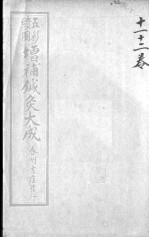 十一十二卷
五彩
繪圖
增補鍼灸大成